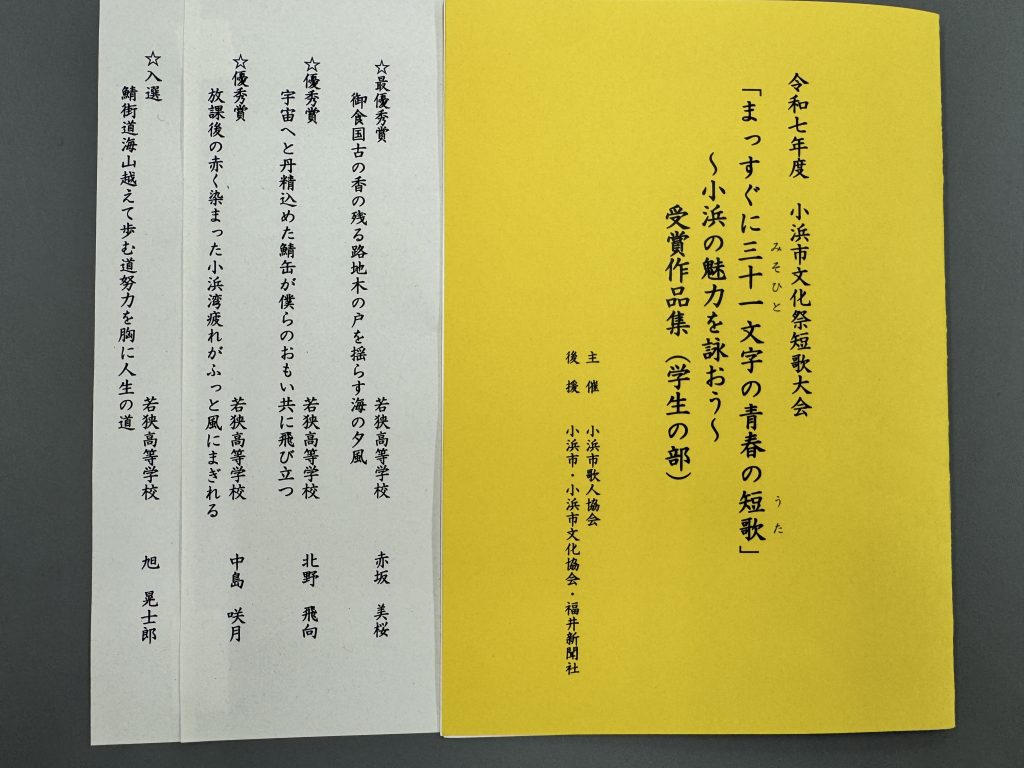 令和七年度　小浜市文化祭短歌大会
「まっすぐに三十一文字の青春の短歌」
みそひと
うた
～小浜の魅力を詠おう～
受賞作品集（学生の部）
主　催　小浜市歌人協会
後　援　小浜市・小浜市文化協会・福井新聞社
☆最優秀賞　若狭高等学校　赤坂　美桜
御食国古の香の残る路地木の戸を揺らす海の夕風
☆優秀賞　若狭高等学校　北野　飛向
宇宙へと丹精込めた鯖缶が僕らのおもい共に飛び立つ
☆優秀賞　若狭高等学校　中島　咲月
放課後の赤く染まった小浜湾疲れがふっと風にまぎれる
☆入選　若狭高等学校　旭　晃士郎
鯖街道海山越えて歩む道努力を胸に人生の道